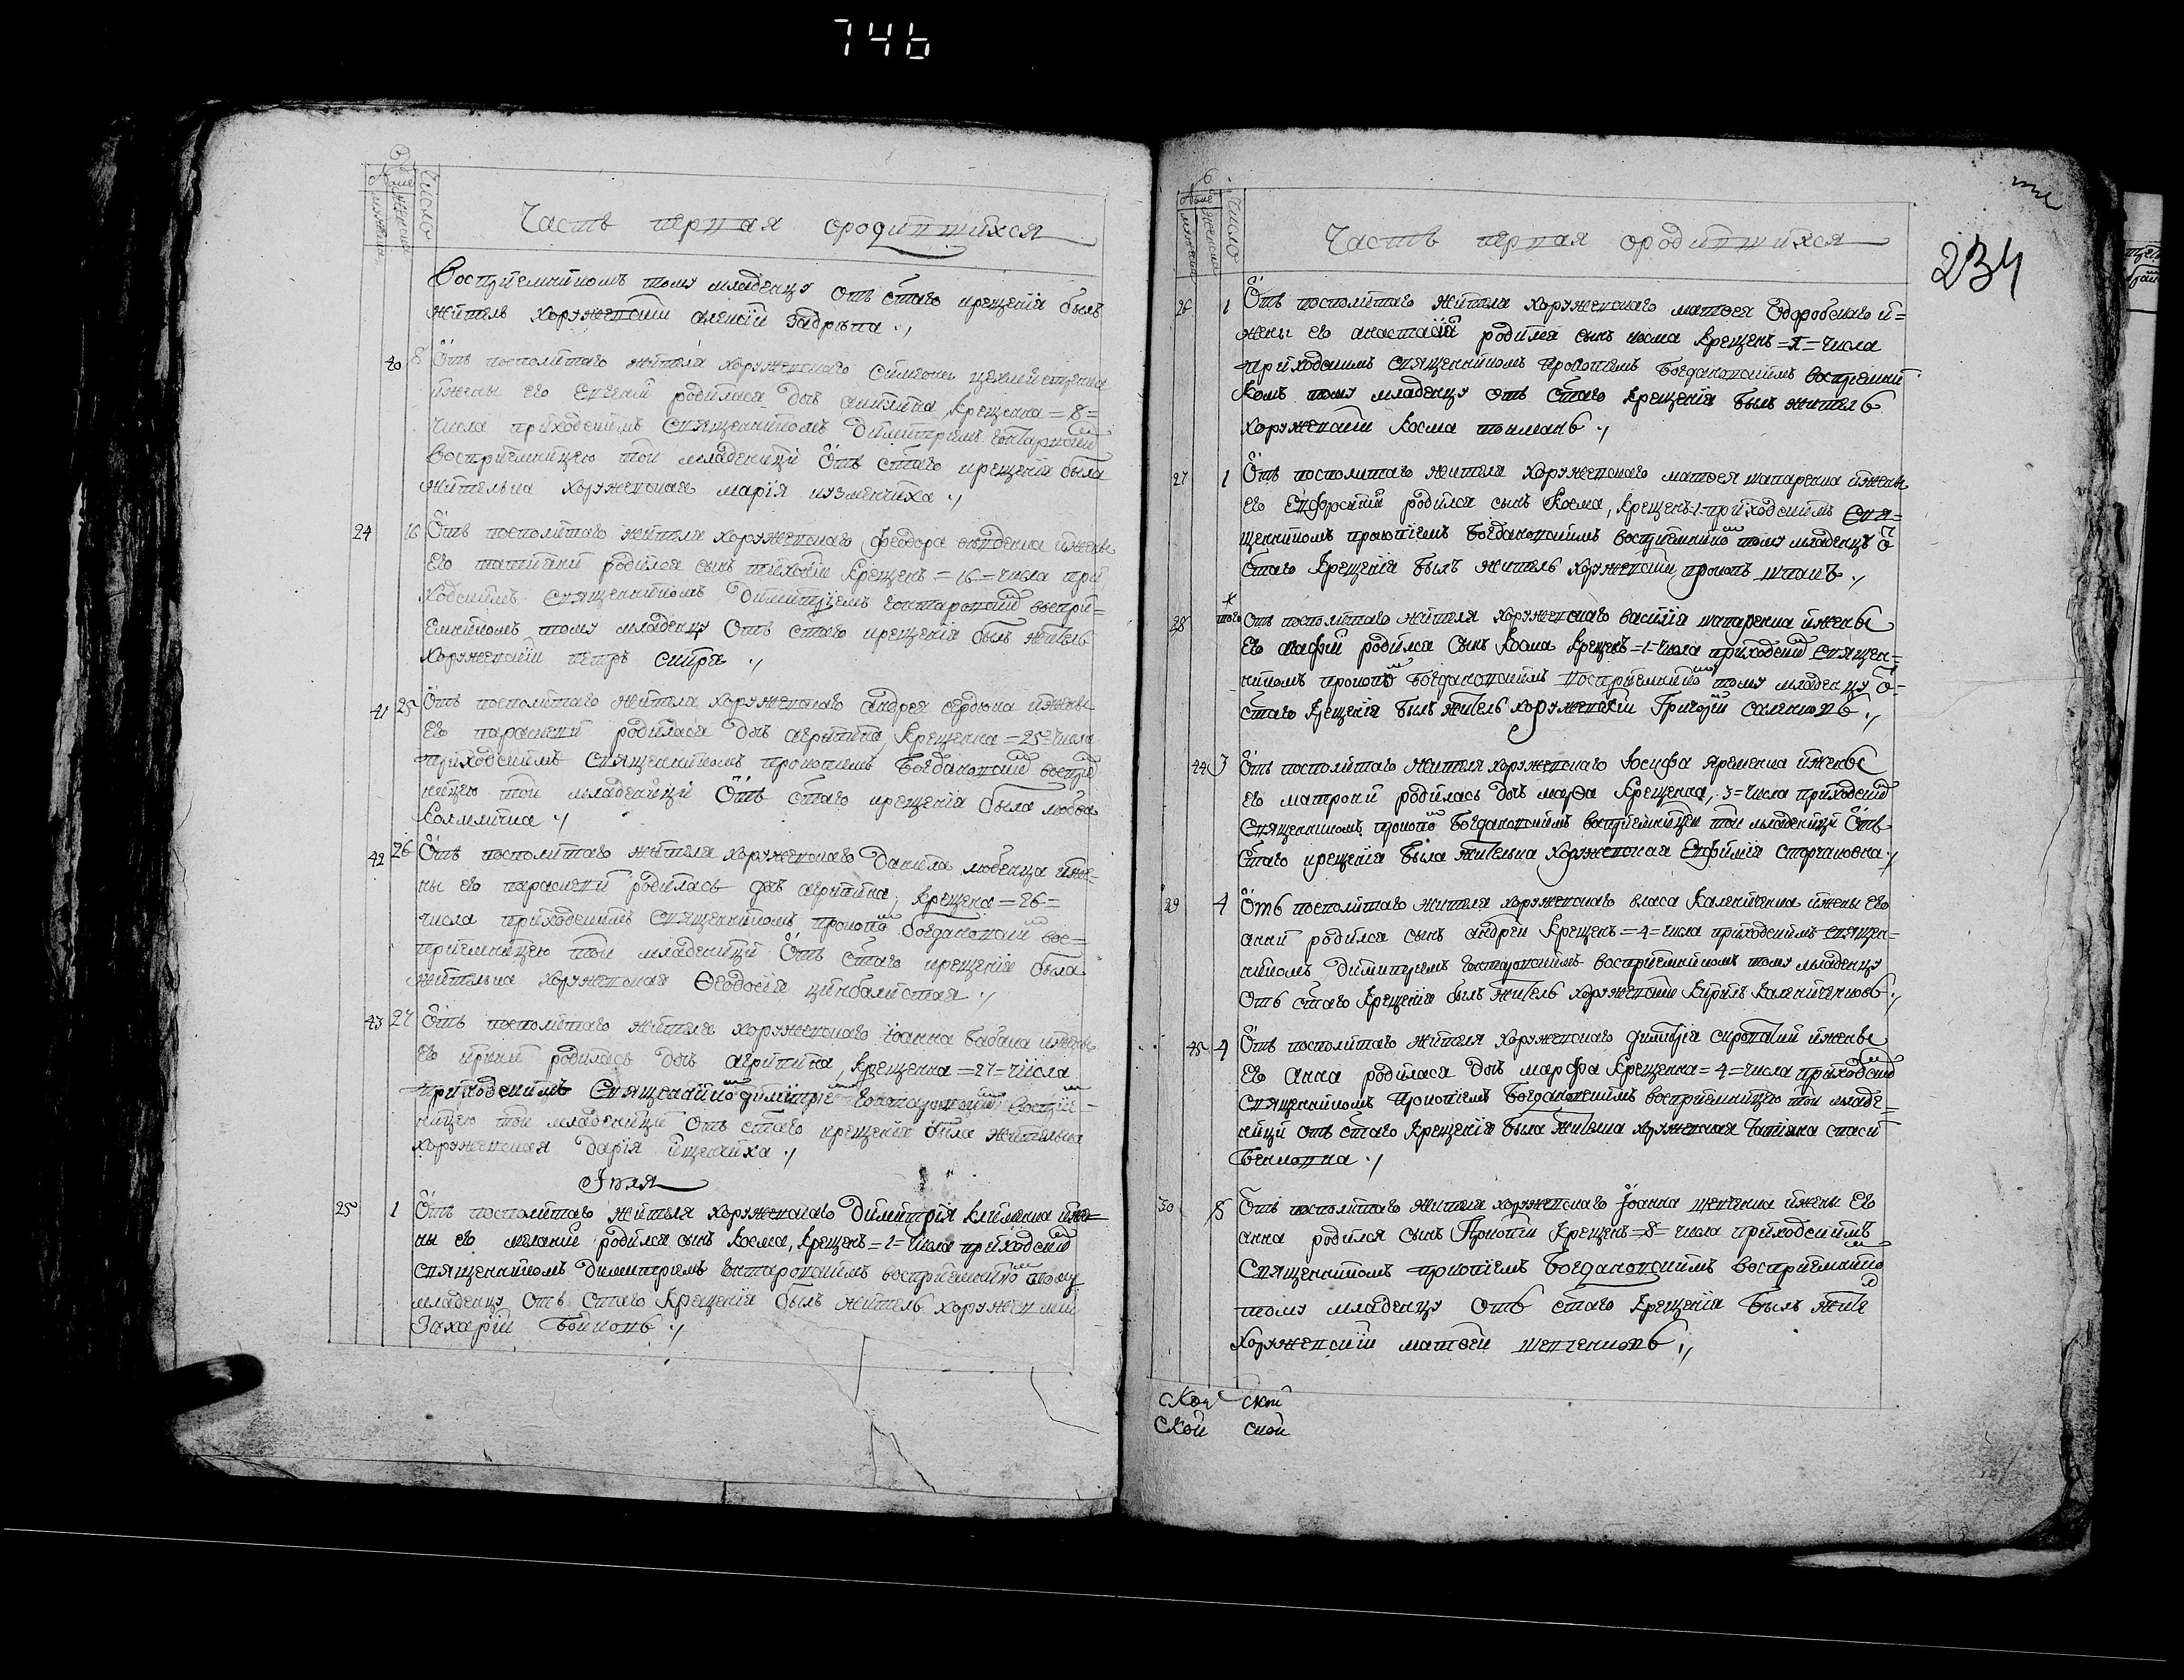 746
Число
Часть первая ородившихся
Восприемникомъ тому младенцу отъ стаго крещенія былъ
житель хоружевскій алексій
20 8 Отъ посполитаго жителя хоружевскаго Симеона
ижены его Евгеніи родилася дочь акилина Крещенна =8=
числа приходскимъ Священникомъ Димитріемъ Гонтаровскимъ
Восприемницею тои младеницы Отъ стаго крещенія была
жителька хоружевская марія кузменчиха ./
24 16 Отъ посполитаго жителя хоружевскаго феодора ижены
Его татіяни родился сынъ тихонъ Крещенъ =16= числа при
ходскимъ Священникомъ Димитріемъ Гонтаровскимъ воспри=
емникомъ тому младенцу Отъ стаго крещенія былъ житель
Хоружевскіи петръ скиря ./
41 25 Отъ посполитаго жителя хоружевскаго андрея сердюка ижены
Его параскеви родилася дочь агрипина, Крещенна =25= числа
приходскимъ Священникомъ прокопіемъ Богдановскимъ воспрі
ницею тои младеницы Отъ стаго крещенія была любва
42 26 Отъ посполитаго жителя хоружевскаго Данила любенца иже=
ны его параскеви родилась дочь агрипина, Крещена =26=
числа приходскимъ Священникомъ прокопо Богдановскі вос=
приемницею тои младеницы Отъ стаго крещенія была
жителька хоружевская Θеодосія цимбалистая ./
43 27 Отъ посполитаго жителя хоружевскаго іоанна бабака ижены
Его ирини родилась дочь агрипина, Крещенна =27= числа
приходскимъ Священнико димитрие Гонтаровскі воспріе=
ницею тои младеницы Отъ стаго крещенія была жителька
хоружевская дарія ищенкиха ./
Іюля
25 1 Отъ посполитаго жителя хоружевскаго Димитрія клименка иже=
ны его меланіи родился сынъ Косма, Крещенъ =1= числа приходскі
священникомъ Димитриемъ Гонтаровскимъ восприемнико тому
младенцу отъ стаго Крещенія былъ житель хоружевскіи
Захаріи Боиковъ ./
234
Число
Часть первая ородившихся
26 1 Отъ посполитаго жителя хоружевскаго матθея и=
жены его анастасіи родился сынъ косма Крещенъ =1= числа
приходскимъ священникомъ прокопіемъ Богдановскимъ восприемни
комъ тому младенцу отъ стаго Крещенія былъ житель
хоружевскіи Косма токмань ./
27 1 Отъ посполитаго жителя хоружевскаго матθея шапаренка ижены
Его Евфросиніи родился сынъ Косма, Крещенъ=1=приходскимъ Свя=
щенникомъ прокопіемъ Богдановскимъ восприемнико тому младенцу ѿ
стаго Крещенія былъ житель хоружевскіи прокопъ ./
28 того Отъ посполитаго жителя хоружевскаго василія шапаренка ижены
Его агафіи родился сынъ Косма Крещенъ =1= числа приходскі Священ=
никомъ прокопо Богдановскимъ восприемнико тому младенцу ѿ=
стаго Крещенія былъ житель хоружевскіи Григоріи саленковъ ./
44 3 Отъ посполитаго жителя хоружевскаго Іосифа яременка ижены
Его матрони родилась дочь марθа Крещенна, 3= числа приходскі
Священникомъ прокопо Богдановскимъ восприемницеи тои младеницы Отъ
стаго крещенія была жителька Хоружевская Евфимія ./
29 4 Отъ посполитаго жителя хоружевскаго власа Каленіченка ижены Его
анни родился сынъ андреи Крещенъ =4= числа приходскимъ священ=
никомъ Димитриемъ Гонтаровскимъ восприемникомъ тому младенцу
Отъ стаго Крещенія былъ житель хоружевскіи Кирилъ Каленіченковъ ./
45 4 Отъ посполитаго жителя хоружевскаго димитрія ижены
Его Анна родилася дочь марфа Крещенна =4= числа приходскі
священникомъ Прокопіемъ Богдановскимъ восприемницею тои младе=
ницы отъ стаго Крещенія была жителька хоружевская татіяна
30 8 Отъ посполитаго жителя хоружевскаго Іоанна шевченка ижены Его
анна родился сынъ Прокопіи Крещенъ =8= числа приходскимъ
Священникомъ прокопіемъ Богдановскимъ восприемнико
тому младенцу Отъ стаго Крещенія былъ жите
хоружевскіи матθеи шевченковъ ./
Ской ской
Ской скои